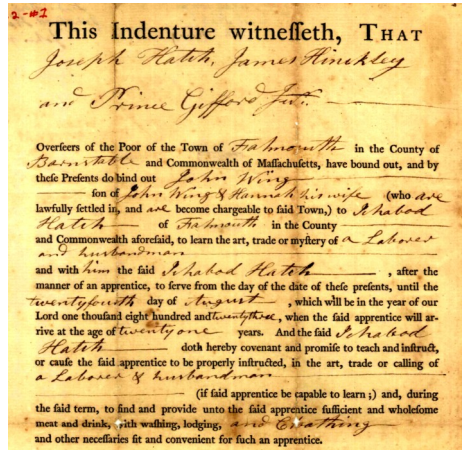 2-#1
This Indenture witnesseth, THAT
Joseph Hatch, James Hinckley
and Prince Gifford Junr.
Overseers of the Poor of the Town of Falmouth in the County of
Barnstable and Commonwealth of Massachusetts, have bound out, and by
these Presents do bind out John Wing
son of John Wing & Hannah his wife (who are
lawfully settled in, and are become chargeable to said Town,) to Ichabod
Hatch of Falmouth in the County
and Commonwealth aforesaid, to learn the art, trade or mystery of a Laborer
and husbandman
and with him the said Ichabod Hatch, after the
manner of an apprentice, to serve from the day of the date of these presents, until the
twentyfourth day of August, which will be in the year of our
Lord one thousand eight hundred and twentythree, when the said apprentice will ar-
rive at the age of twenty one years. And the said Ichabod
Hatch doth hereby covenant and promise to teach and instruct,
or cause the said apprentice to be properly instructed, in the art, trade or calling of
a Laborer & husbandman
(if said apprentice be capable to learn;) and, during
the said term, to find and provide unto the said apprentice sufficient and wholesome
meat and drink, with washing, lodging, and Cloathing
and other necessaries fit and convenient for such an apprentice.